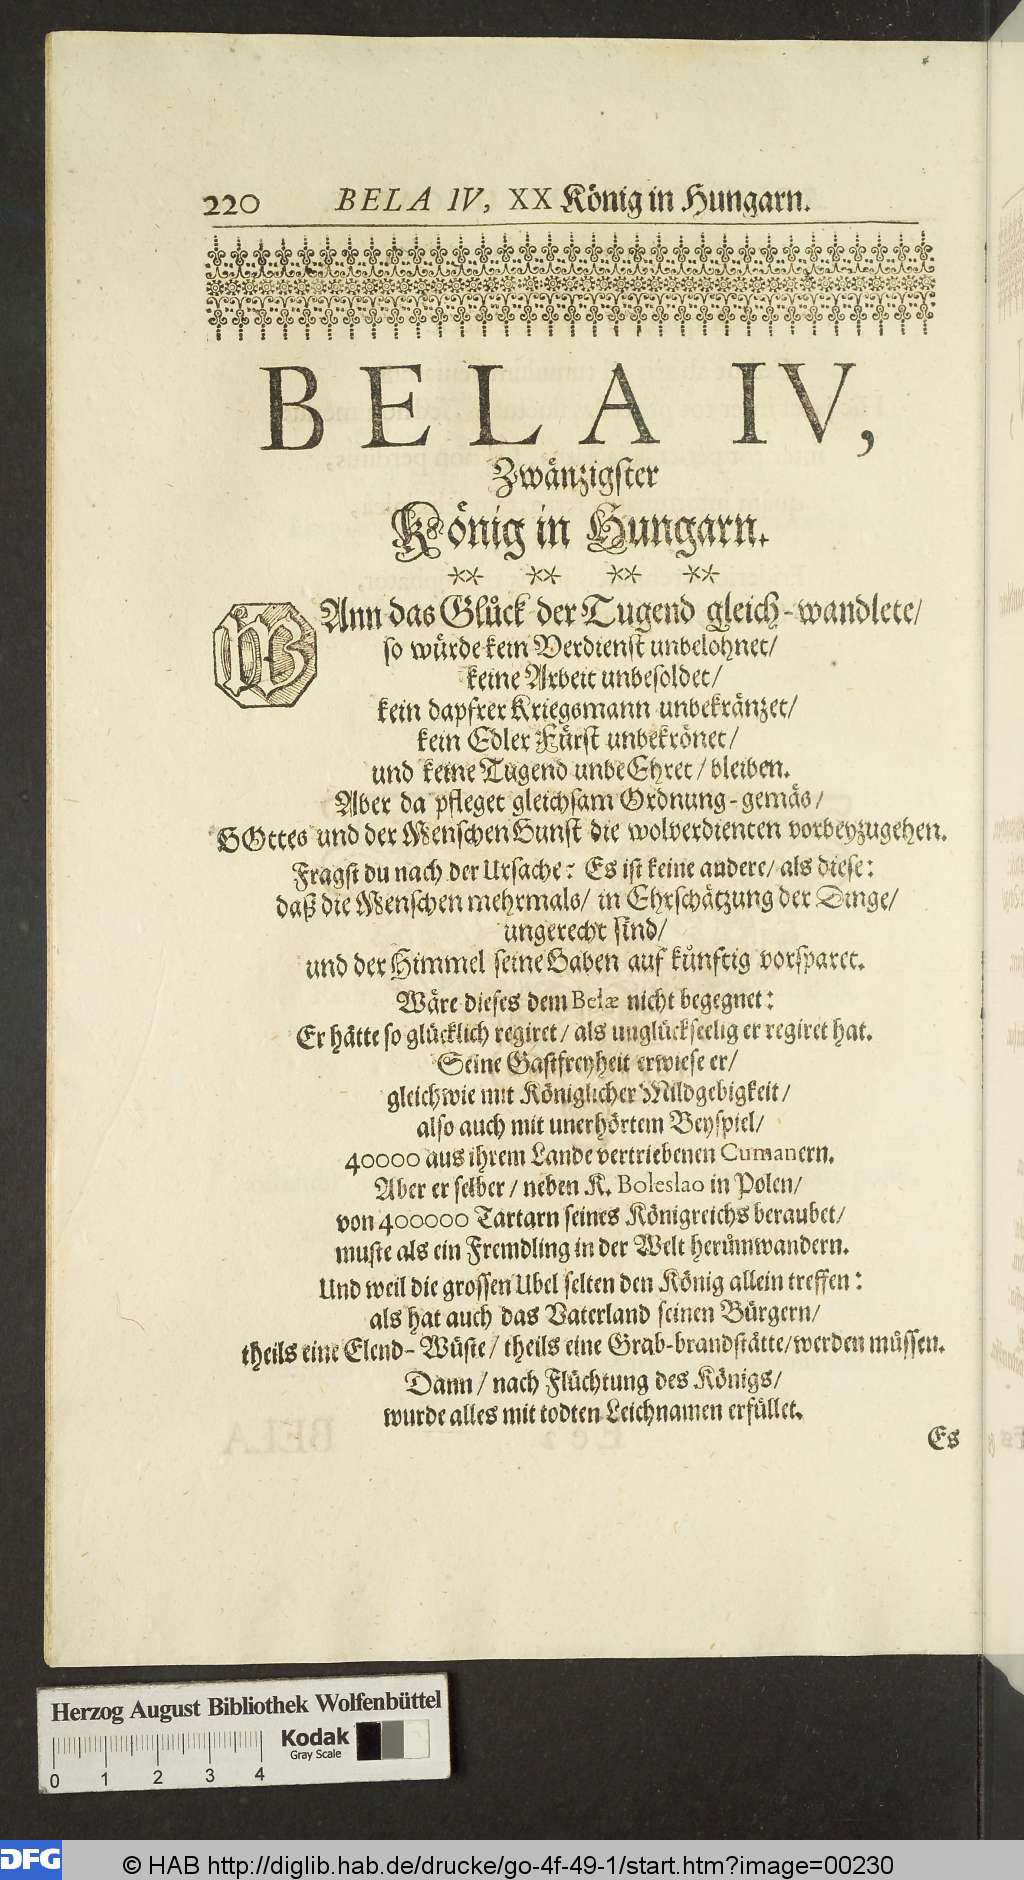 220 BELA IV, XX König in Hungarn.
BELA IV,
Zwänzigster
König in Hungarn.
** ** ** **
WAnn das Glück der Tugend gleich-wandlete/
so würde kein Verdienst unbelohnet/
keine Arbeit unbesoldet/
kein dapfrer Kriegsmann unbekränzet/
kein Edler Fürst unbekrönet/
und keine Tugend unbeEhret/ bleiben.
Aber da pfleget gleichsam Ordnung-gemäs/
GOttes und der Menschen Gunst die wolverdienten vorbeyzugehen.
Fragst du nach der Ursache: Es ist keine andere/ als diese:
daß die Menschen mehrmals/ in Ehrschätzung der Dinge/
ungerecht sind/
und der Himmel seine Gaben auf künftig vorsparet.
Wäre dieses dem Belæ nicht begegnet:
Er hätte so glücklich regiret/ als unglückseelig er regiret hat.
Seine Gastfreyheit erwiese er/
gleichwie mit Königlicher Mildgebigkeit/
also auch mit unerhörtem Beyspiel/
40000 aus ihrem Lande vertriebenen Cumanern.
Aber er selber/ neben K. Boleslao in Polen/
von 400000 Tartarn seines Königreichs beraubet/
muste als ein Fremdling in der Welt herümwandern.
Und weil die grossen Ubel selten den König allein treffen:
als hat auch das Vaterland seinen Bürgern/
theils eine Elend-Wüste/ theils eine Grab-brandstätte/ werden müssen.
Dann/ nach Flüchtung des Königs/
wurde alles mit todten Leichnamen erfüllet.
Es
Herzog August Bibliothek Wolfenbüttel
Kodak
Gray Scale
0 1 2 3 4
DFG © HAB http://diglib.hab.de/drucke/go-4f-49-1/start.htm?image=00230